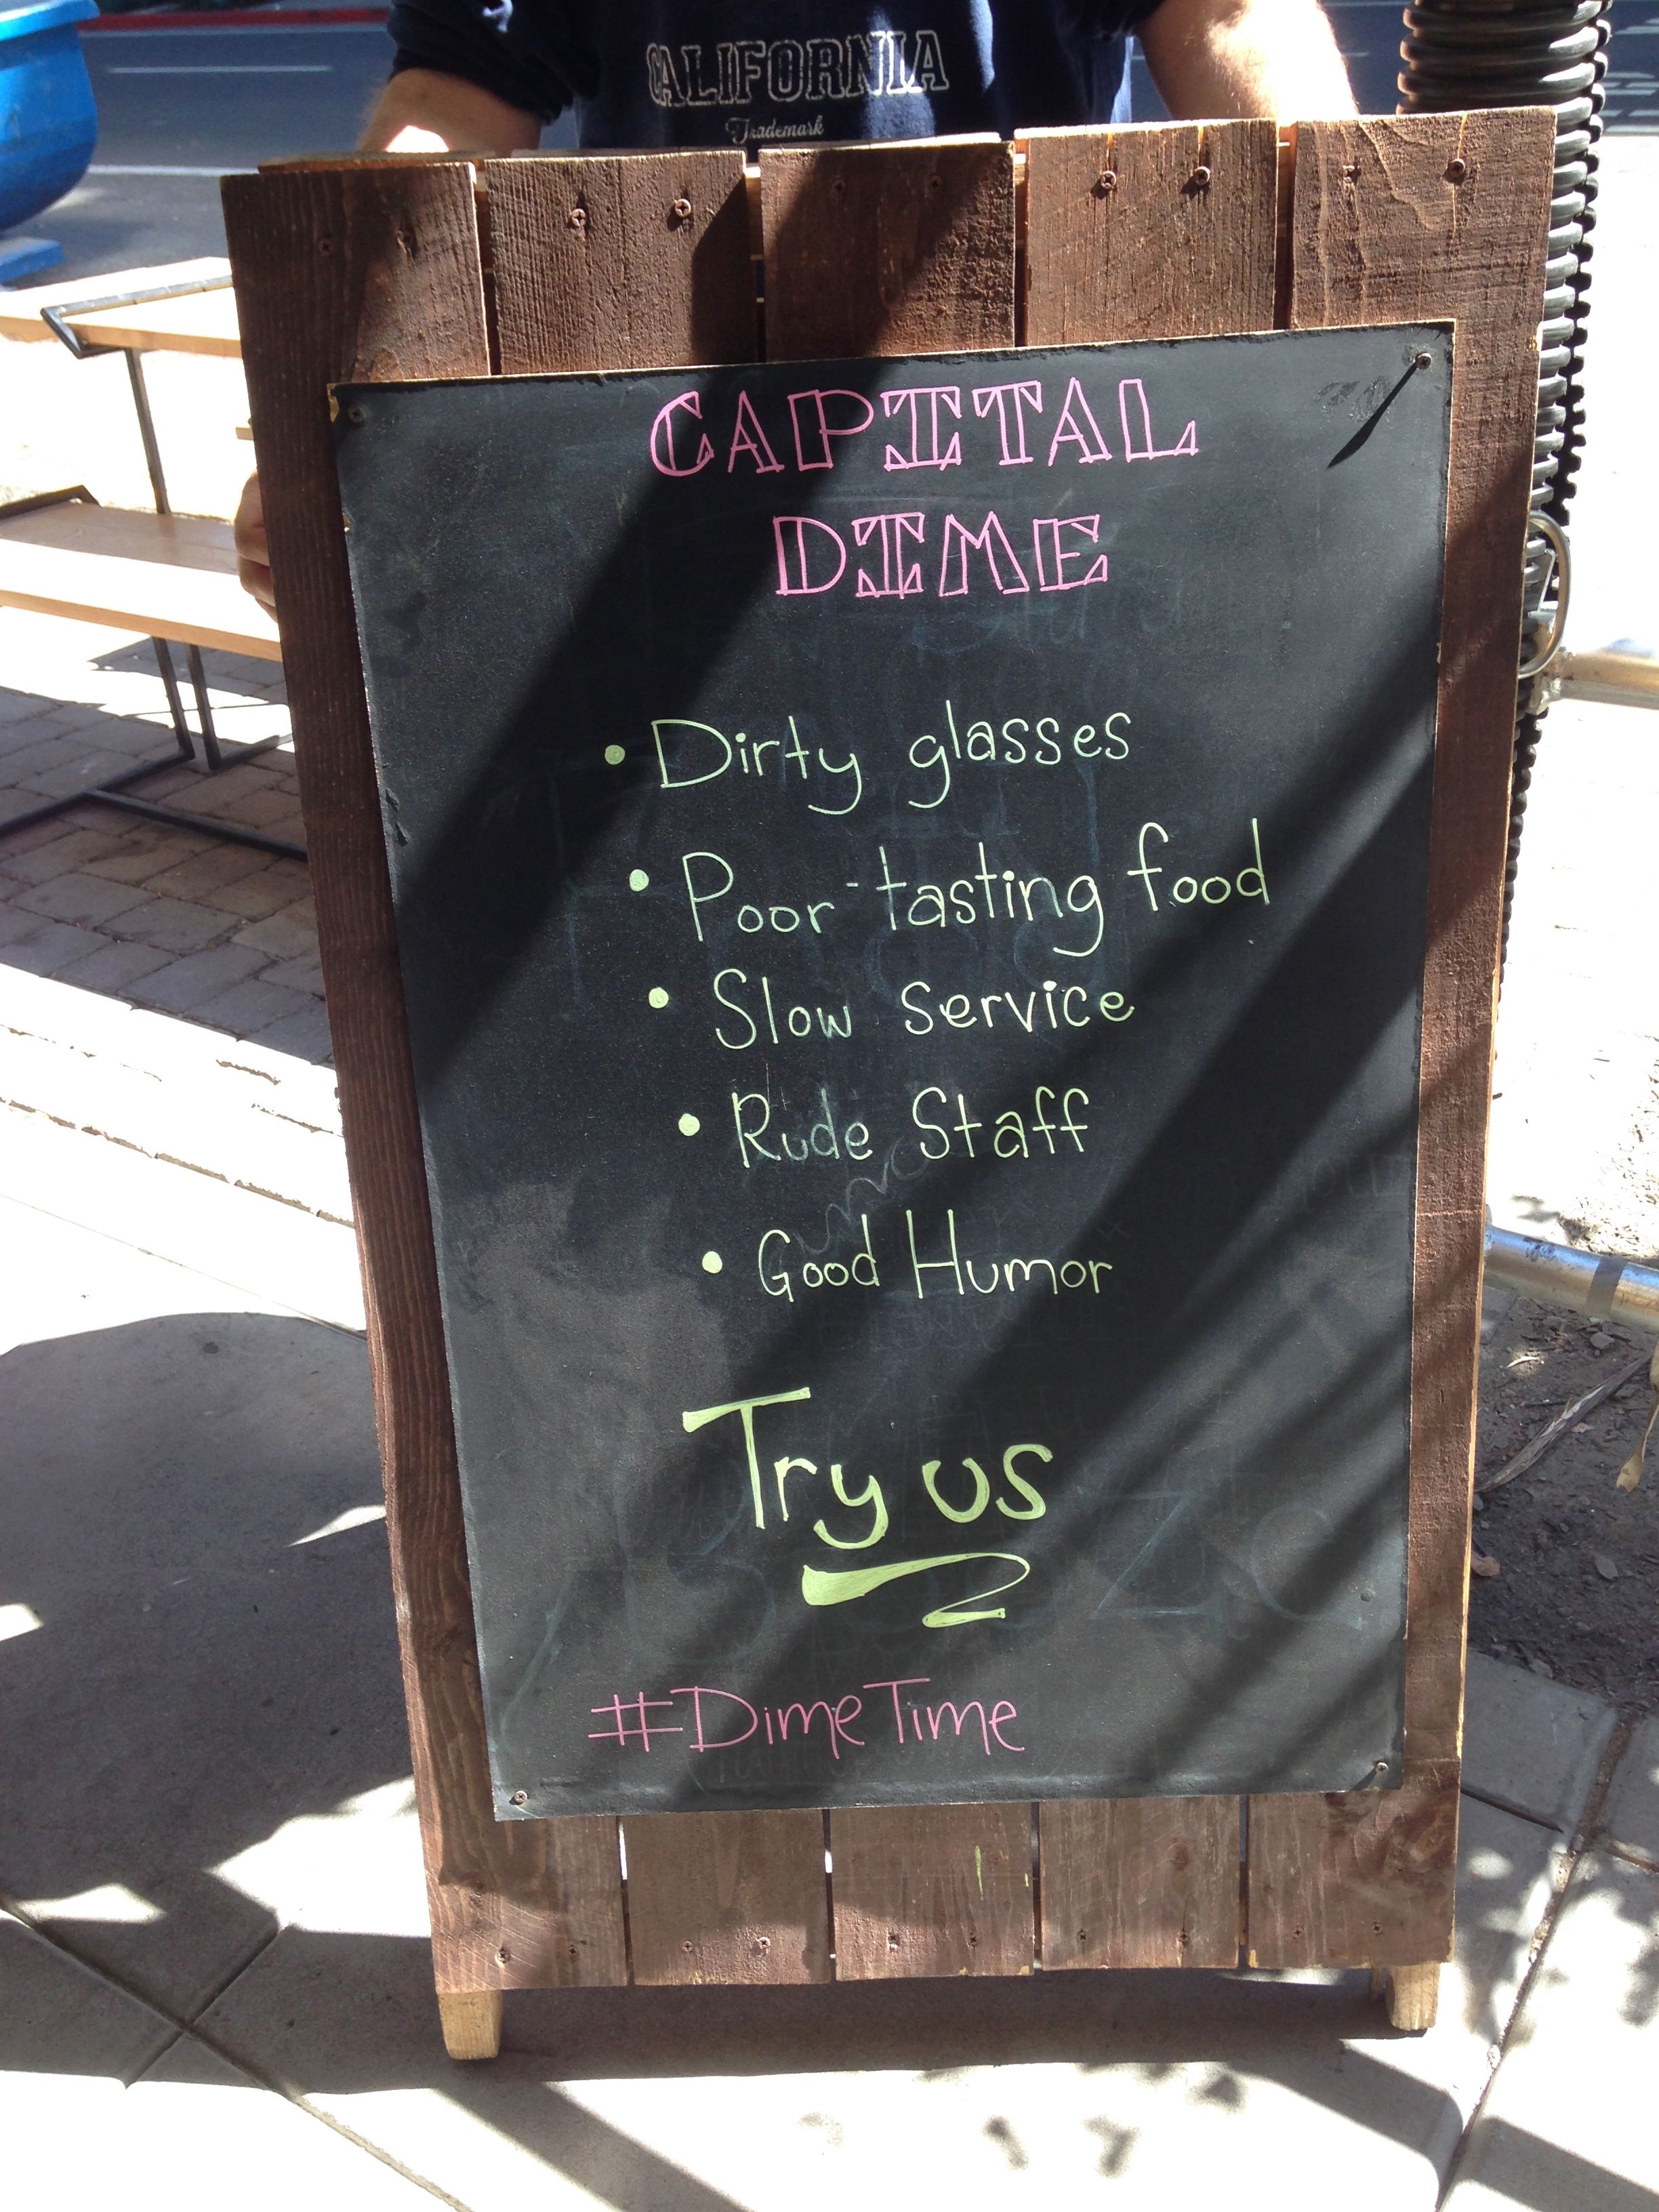 CALIFORNIA
Trademark
CAPITAL
DIME
• Dirty glasses
• Poor-tasting food
• Slow service
• Rude Staff
• Good Humor
Try us
#DimeTime